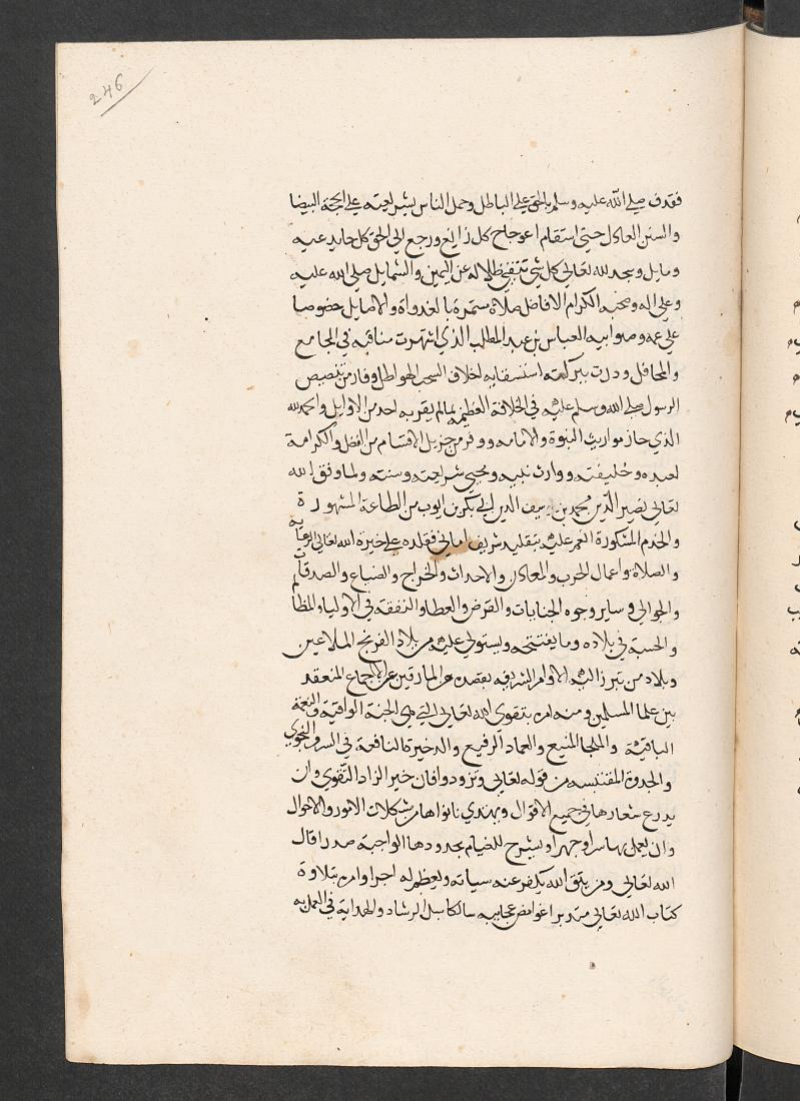 246
فقدف صلى الله عليه وسلم بالحق على الباطل وحمل الناس بشريعته على المحجة البيضا
والسنن العادل حتى استقام اعوجاج كل زايغ ورجع الى الحق كل حايد عنه
ومايل وسجد لله تعالى كل شي تتفيؤ ظلاله عن اليمين والشمايل صلى الله عليه
وعلى اله وصحبه الكرام الافاضل صلاة مستمرة بالغدواة والاصايل خصوصا
على عمه وصنو ابيه العباس بن عبد المطلب الذي اشتهرت مناقبه في المجامع
والمحافل ودرت ببركته استسقايه اخلاف السحب الهواطل وفاز من تنصيص
الرسول صلى الله وسلم عليه في الخلافة العظيمه بمالم يفز به احد من الاوايل والحمد لله
الذي حاز مواريث النبوة والامامه ووفر من جزيل الاقسام من الفضل والكرامة
لعبده وخليفته ووارث نبيه ومحيي شريعته وسنته ولما وفق الله
تعالى نصير الدين محمد بن سيف الدين ابي بكر بن ايوب من الطاعة المشهورة
والخدم المشكورة انعم عليه بتقليد شريف امامي فقلده على خيرة الله تعالى الرعاية
والصلاة واعمال الحرب والمعادن والاحداث والخراج والضياع والصدقات
والجوالي وساير وجوه الجنايات والقرض والعطا والنفقة في الاولياء والمظالم
والحسبة في بلاده وما يفتتحه ويستولى عليه من بلاد الفرنج الملاعين
وبلاد من تبرز اليه الاوامر الشريفه بقصده من المارقين عن الاجماع المنعقد
بين علما المسلمين ومنه امره بتقوى الله تعالى التي هي الجنة الواقية والنعمة
الباقية والملجا المنيع والعماد الرفيع والدخيرة النافعة في السر والنجوي
والجدوة المقتبسه من قوله تعالى وتزودوا فان خير الزاد التقوي وان
يدرع شعارها في جميع الاقوال ويهتدي بانوارها في مشكلات الامور والاحوال
وان يعمل بها سرا وجهرا ويشرح للقيام بحدودها الواجبة صدرا قال
الله تعالى ومن يتق الله يكفر عنه سياته ويعظم له اجرا وامره بتلاوة
كتاب الله تعالى متدبرا غوامض عجايبه سالكا سبل الرشاد والهداية في العمل به